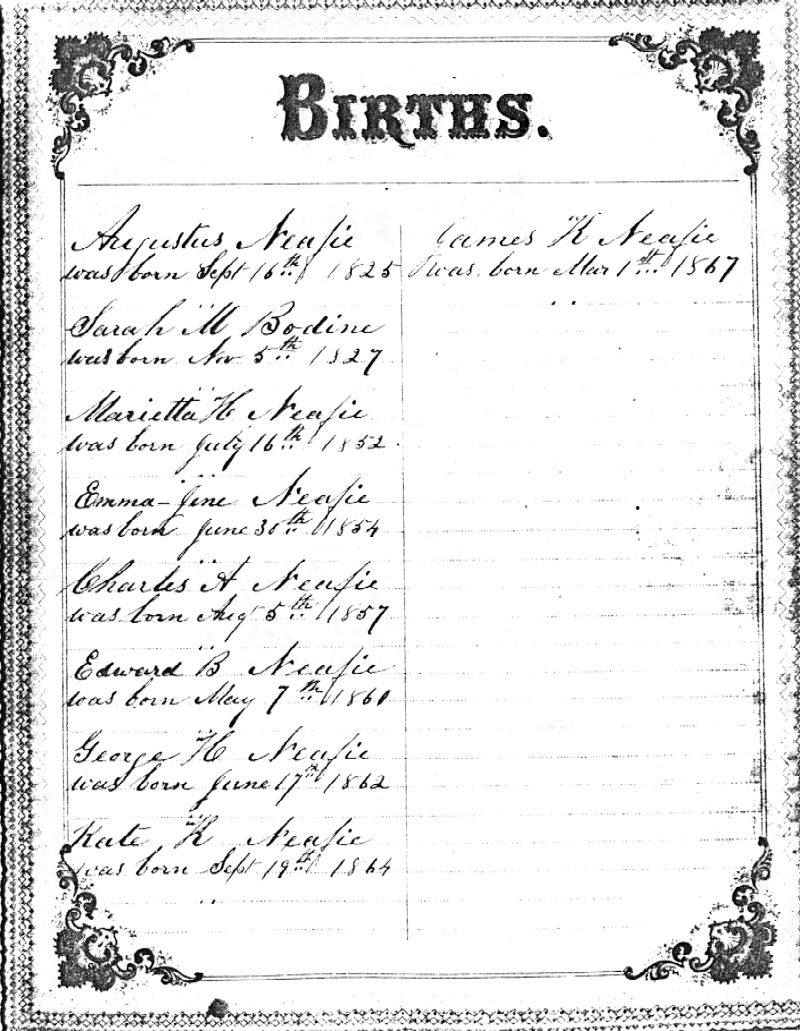 BIRTHS.
Augustus Neafie
was born Sept 16th 1825
Sarah M Bodine
was born Nov 5th 1827
Marietta H Neafie
was born July 16th 1852
Emma-Jine Neafie
was born June 30th 1854
Charles A Neafie
was born Aug 5th 1857
Edward B Neafie
was born May 7th 1860
George H Neafie
was born June 17th 1862
Kate K Neafie
was born Sept 19th 1864
James K Neafie
was born Mar 1st 1867